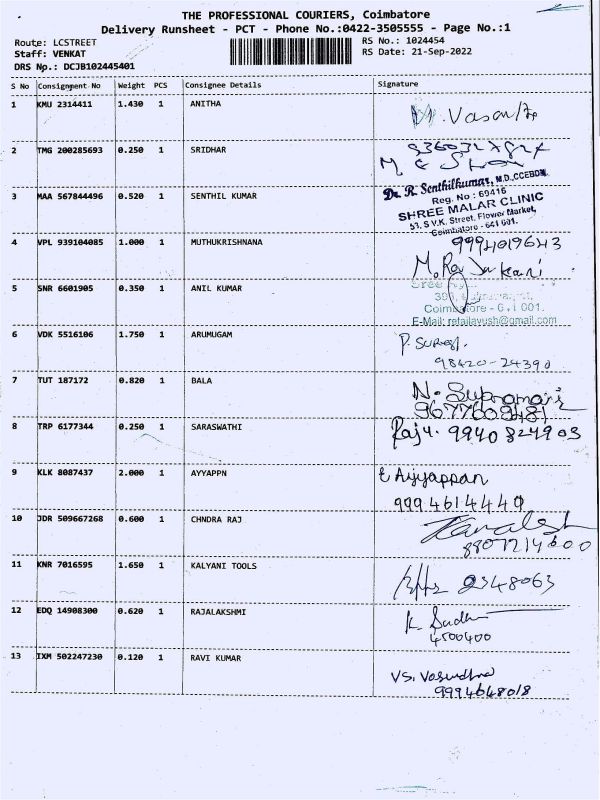 THE PROFESSIONAL COURIERS, Coimbatore
Delivery Runsheet - PCT - Phone No.:0422-3505555 - Page No.:1
Route: LCSTREET
RS No.: 1024454
Staff: VENKAT
RS Date: 21-Sep-2022
DRS No.: DCJB102445401
S No Consignment No Weight PCS Consignee Details Signature
1 KMU 2314411 1.430 1 ANITHA
2 TMG 200285693 0.250 1 SRIDHAR
3 MAA 567844496 0.520 1 SENTHIL KUMAR
Dr. R. Senthilkumar, M.D.,CCEBDM,
Reg. No : 69416
SHREE MALAR CLINIC
53, S.V.K. Street, Flower Market,
Coimbatore - 641 001.
4 VPL 939104085 1.000 1 MUTHUKRISHNANA
9994019643
5 SNR 6601905 0.350 1 ANIL KUMAR
Sree
Coimbatore - 641 001.
E-Mail: retailayush@gmail.com
6 VDK 5516106 1.750 1 ARUMUGAM
P. Suresh.
98420-24390
7 TUT 187172 0.820 1 BALA
N.
9677609481
8 TRP 6177344 0.250 1 SARASWATHI
Raju. 9940824903
9 KLK 8087437 2.000 1 AYYAPPN
E Ayyappan
9994614449
10 JDR 509667268 0.600 1 CHNDRA RAJ
8807214600
11 KNR 7016595 1.650 1 KALYANI TOOLS
2348063
12 EDQ 14908300 0.620 1 RAJALAKSHMI
4500400
13 IXM 502247230 0.120 1 RAVI KUMAR
VS. Vasudha
9994648018